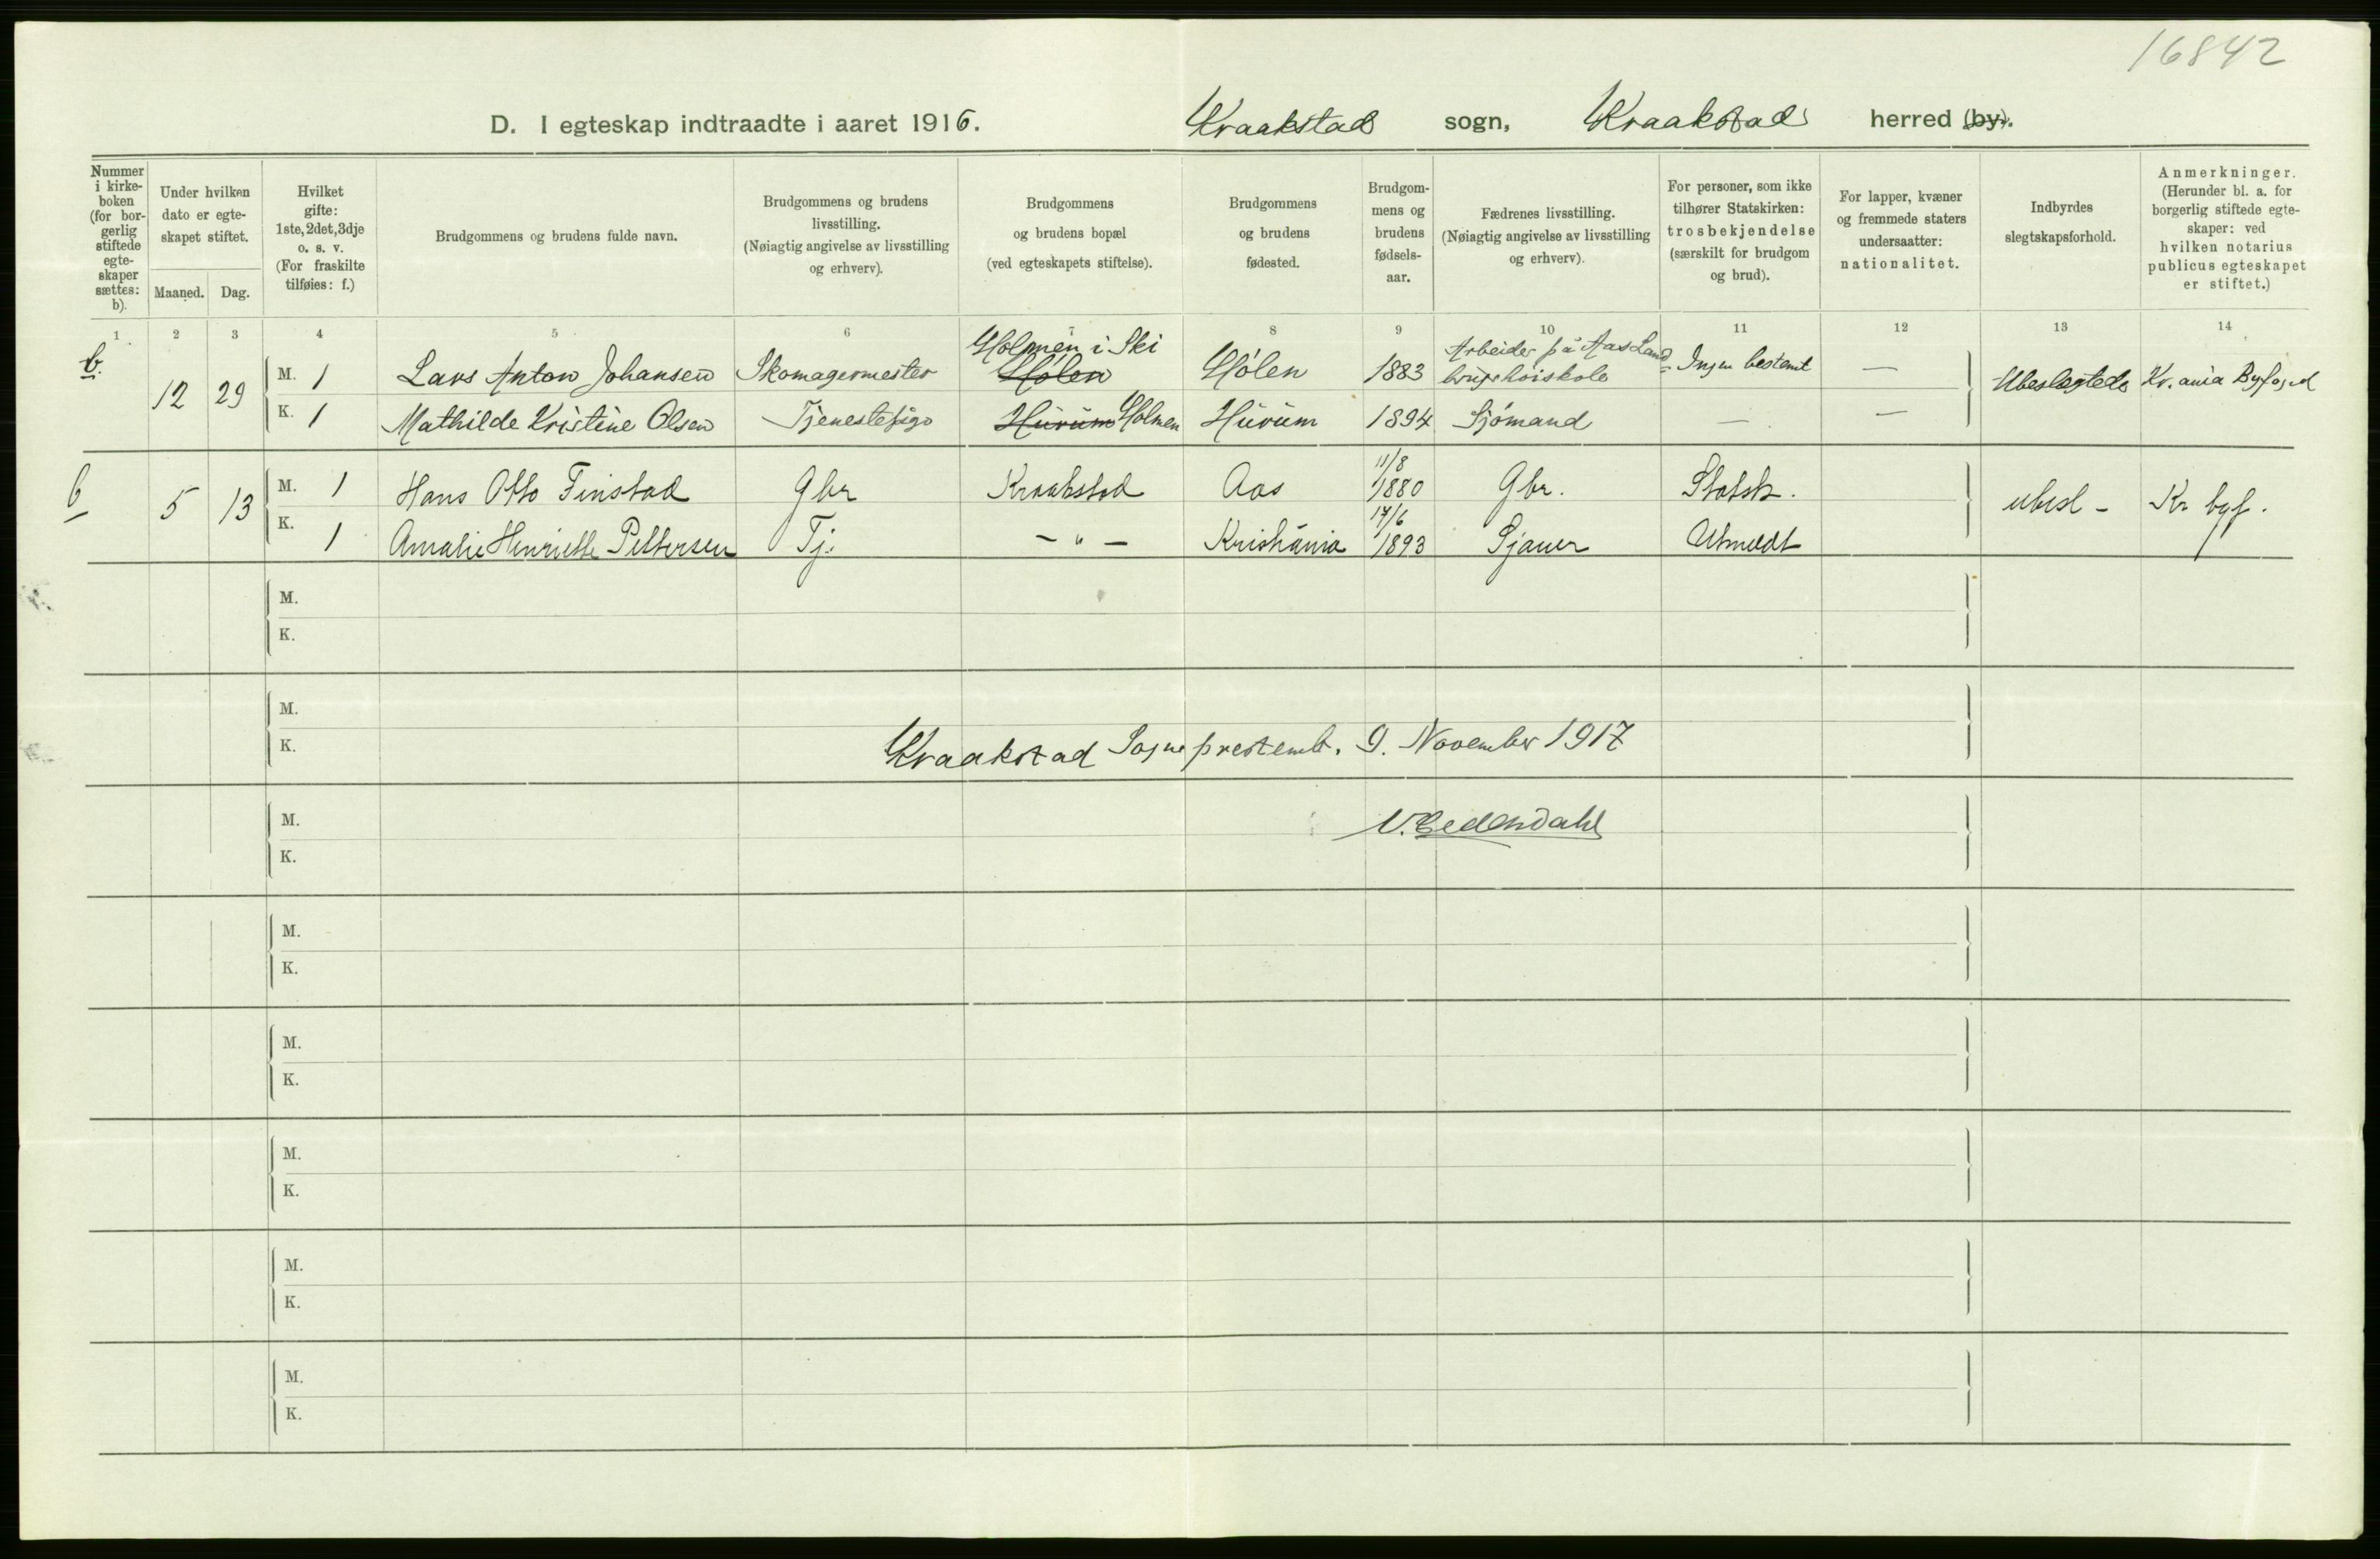 16842
D. I egteskap indtraadte i aaret 1916. Kraakstad sogn, Kraakstad herred (by).
Nummer i kirke-boken (for bor-gerlig stiftede egte-skaper sættes: b).
Under hvilken dato er egte-skapet stiftet.
Maaned. Dag.
Hvilket gifte: 1ste, 2det, 3dje o. s. v. (For fraskilte tilføies: f.)
Brudgommens og brudens fulde navn.
Brudgommens og brudens livsstilling. (Nøiagtig angivelse av livsstilling og erhverv).
Brudgommens og brudens bopæl (ved egteskapets stiftelse).
Brudgommens og brudens fødested.
Brudgom-mens og brudens fødsels-aar.
Fædrenes livsstilling. (Nøiagtig angivelse av livsstilling og erhverv).
For personer, som ikke tilhører Statskirken: trosbekjendelse (særskilt for brudgom og brud).
For lapper, kvæner og fremmede staters undersaatter: nationalitet.
Indbyrdes slegtskapsforhold.
Anmerkninger. (Herunder bl. a. for borgerlig stiftede egte-skaper: ved hvilken notarius publicus egteskapet er stiftet.)
1 2 3 4 5 6 7 8 9 10 11 12 13 14
b. 12 29 M. 1 Lars Anton Johansen Skomagermester Hölen Holmen i Ski Hölen 1883 Arbeider på Aas Land-brugshöiskole Ingen bestemt — Ubeslegtede Kr.ania Byfoged
K. 1 Mathilde Kristine Olsen Tjenestepige Hurum Holmen Hurum 1894 Sjömand — —
b 5 13 M. 1 Hans Otto Finstad Gbr Kraakstad Aas 11/8 1880 Gbr. Statsk. ubesl - Kr byf.
K. 1 Amalie Henriette Pettersen Tj. - " - Kristiania 17/6 1893 Sjauer Utmeldt
M.
K.
M.
K.
Kraakstad Sogneprestemb. 9. November 1917
M.
K.
M.
K.
M.
K.
M.
K.
M.
K.
M.
K.